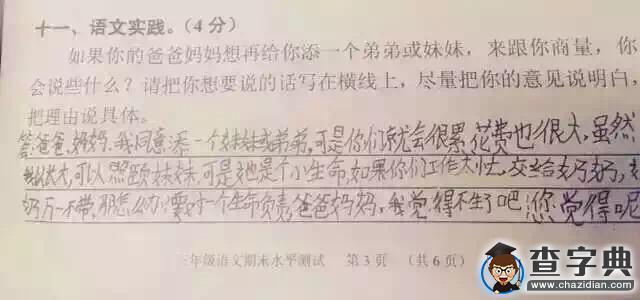 十一、语文实践。(4分)
如果你的爸爸妈妈想再给你添一个弟弟或妹妹，来跟你商量，你
会说些什么？请把你想要说的话写在横线上，尽量把你的意见说明白，
把理由说具体。
答:爸爸、妈妈,我同意添一个妹妹或弟弟,可是你们就会很累,花费也很大,虽然,
我长大,可以照顾妹妹,可是她是个小生命,如果你们工作太忙,交给奶奶,
奶万一不带,那怎么办,要对一个生命负责,爸爸妈妈,我觉得不生了吧,您觉得呢
三年级语文期末水平测试 第3页 (共6页)
查字典
www.chazidian.com